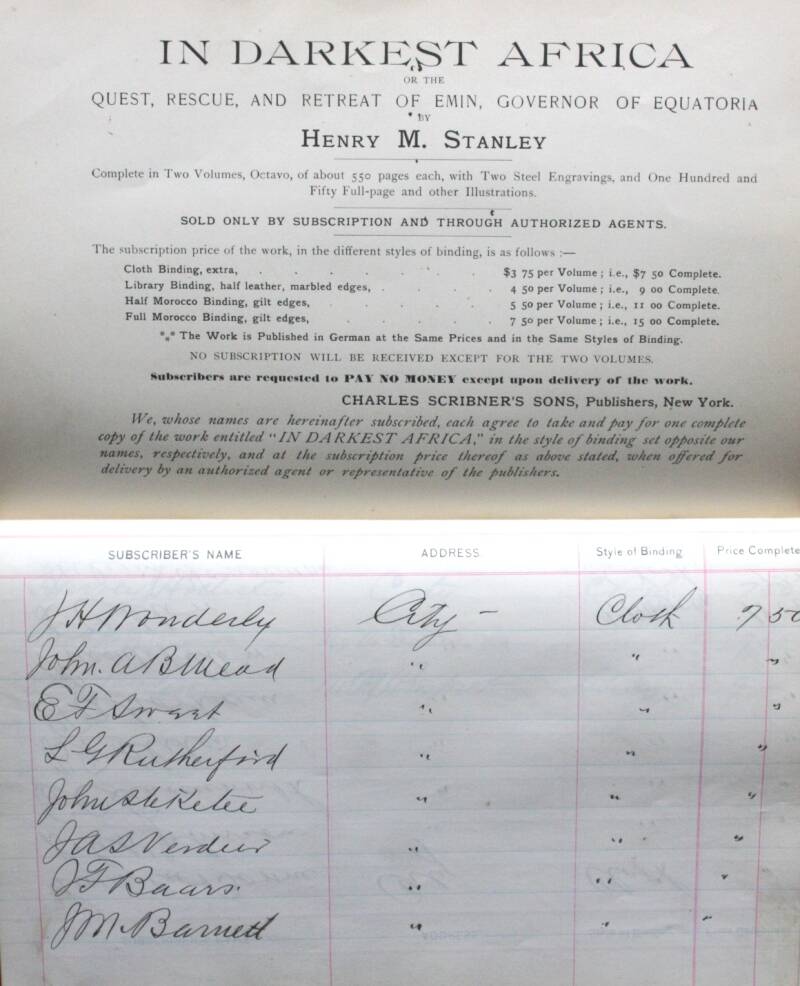 IN DARKEST AFRICA
OR THE
QUEST, RESCUE, AND RETREAT OF EMIN, GOVERNOR OF EQUATORIA
BY
HENRY M. STANLEY
Complete in Two Volumes, Octavo, of about 550 pages each, with Two Steel Engravings, and One Hundred and
Fifty Full-page and other Illustrations.
SOLD ONLY BY SUBSCRIPTION AND THROUGH AUTHORIZED AGENTS.
The subscription price of the work, in the different styles of binding, is as follows :—
Cloth Binding, extra, . . . . . . . $3 75 per Volume ; i.e., $7 50 Complete.
Library Binding, half leather, marbled edges, . . . . 4 50 per Volume ; i.e., 9 00 Complete.
Half Morocco Binding, gilt edges, . . . . . 5 50 per Volume ; i.e., 11 00 Complete.
Full Morocco Binding, gilt edges, . . . . . 7 50 per Volume ; i.e., 15 00 Complete.
*** The Work is Published in German at the Same Prices and in the Same Styles of Binding.
NO SUBSCRIPTION WILL BE RECEIVED EXCEPT FOR THE TWO VOLUMES.
Subscribers are requested to PAY NO MONEY except upon delivery of the work.
CHARLES SCRIBNER'S SONS, Publishers, New York.
We, whose names are hereinafter subscribed, each agree to take and pay for one complete
copy of the work entitled "IN DARKEST AFRICA," in the style of binding set opposite our
names, respectively, and at the subscription price thereof as above stated, when offered for
delivery by an authorized agent or representative of the publishers.
SUBSCRIBER'S NAME ADDRESS Style of Binding Price Complete
J H Wonderly City — Cloth 7 50
John. A B Mead " " "
E F Sweet " " "
L G Rutherford " " "
John Steketee " " "
J A S Verdier " " "
J F Baars. " " "
J M Barnett " " "